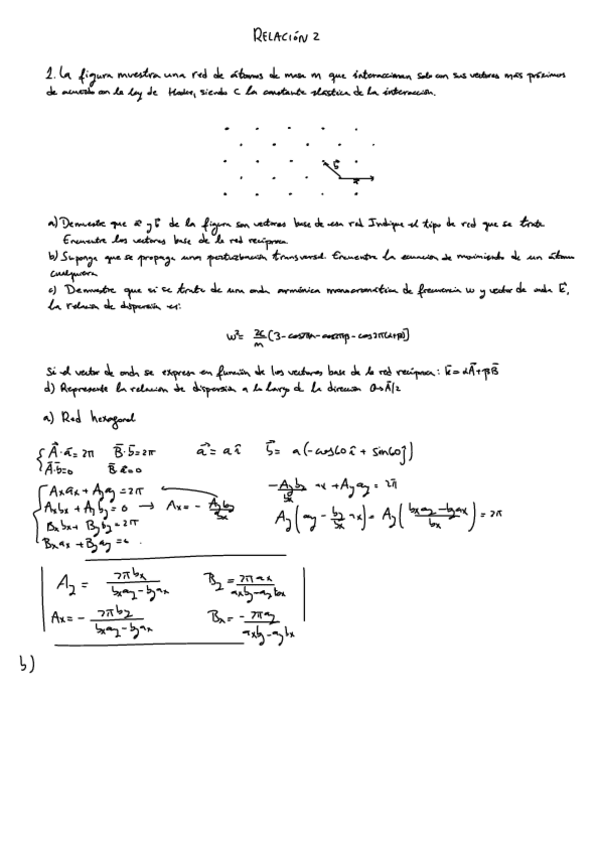 RELACIÓN 2
1. La figura muestra una red de átomos de masa m que interaccionan solo con sus vectores más próximos
de acuerdo con la ley de Hooke, siendo C la constante elástica de la interacción.
b
a
a) Demuestre que a⃗ y b⃗ de la figura son vectores base de esa red. Indique el tipo de red que se trata
Encuentre los vectores base de la red recíproca
b) Suponga que se propaga una perturbación transversal. Encuentre la ecuación de movimiento de un átomo
cualquiera
c) Demuestre que si se trata de una onda armónica monocromática de frecuencia ω y vector de onda k⃗,
la relación de dispersión es:
ω² = 2C/m [3 - cos2πα - cos2πβ - cos2π(α+β)]
Si el vector de onda se expresa en función de los vectores base de la red recíproca: k⃗ = αA⃗ + βB⃗
d) Represente la relación de dispersión a lo largo de la dirección 0 → A⃗/2
a) Red hexagonal
A⃗·a⃗ = 2π B⃗·b⃗ = 2π a⃗ = a î b⃗ = a(-cos60 î + sin60 ĵ)
A⃗·b⃗ = 0 B⃗·a⃗ = 0
Axax + Ayay = 2π
Axbx + Ayby = 0 → Ax = - Ayby/bx
Bxbx + Byby = 2π
Bxax + Byay = 0
- Ayby/bx ax + Ayay = 2π
Ay(ay - by/bx ax) = Ay((bxay - byax)/bx) = 2π
Ay = 2πbx/(bxay - byax) By = 2πax/(axby - aybx)
Ax = - 2πby/(bxay - byax) Bx = - 2πay/(axby - aybx)
b)